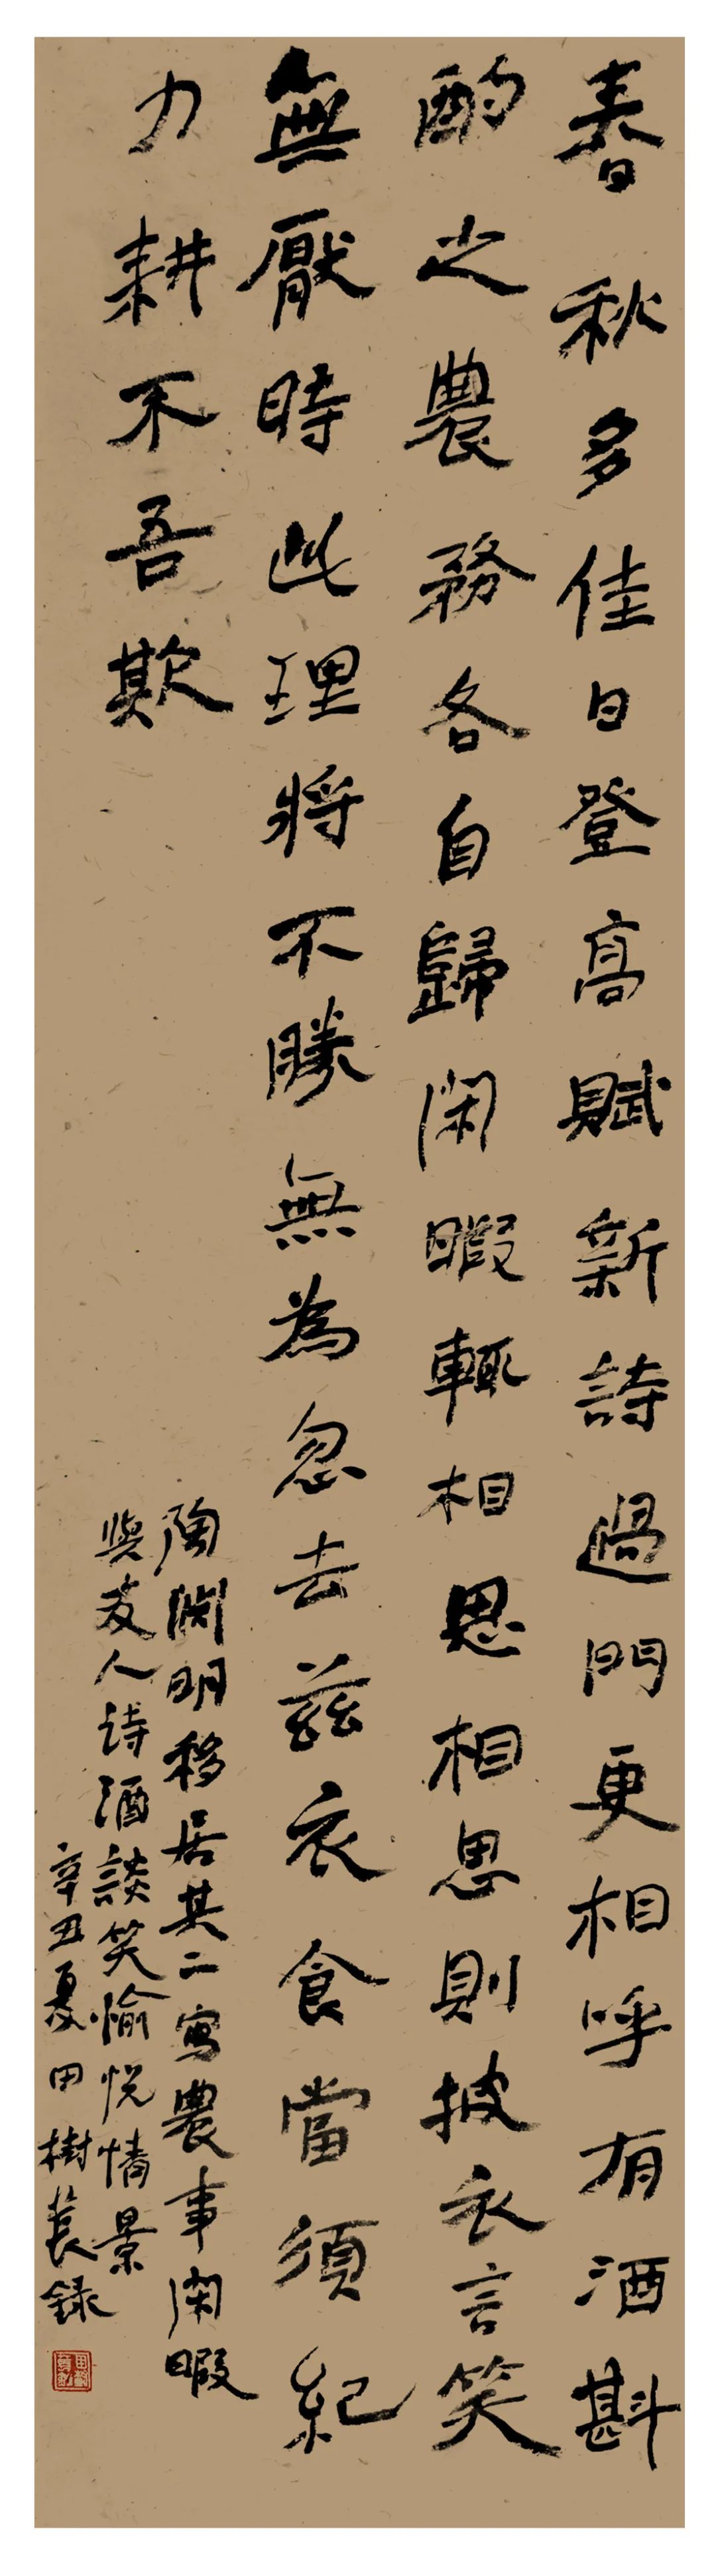 春秋多佳日登高賦新詩過門更相呼有酒斟
酌之農務各自歸閑暇輒相思相思則披衣言笑
無厭時此理將不勝無為忽去茲衣食當須紀
力耕不吾欺
陶淵明移居其二寫農事閑暇
與友人诗酒談笑愉悦情景
辛丑夏田樹萇録